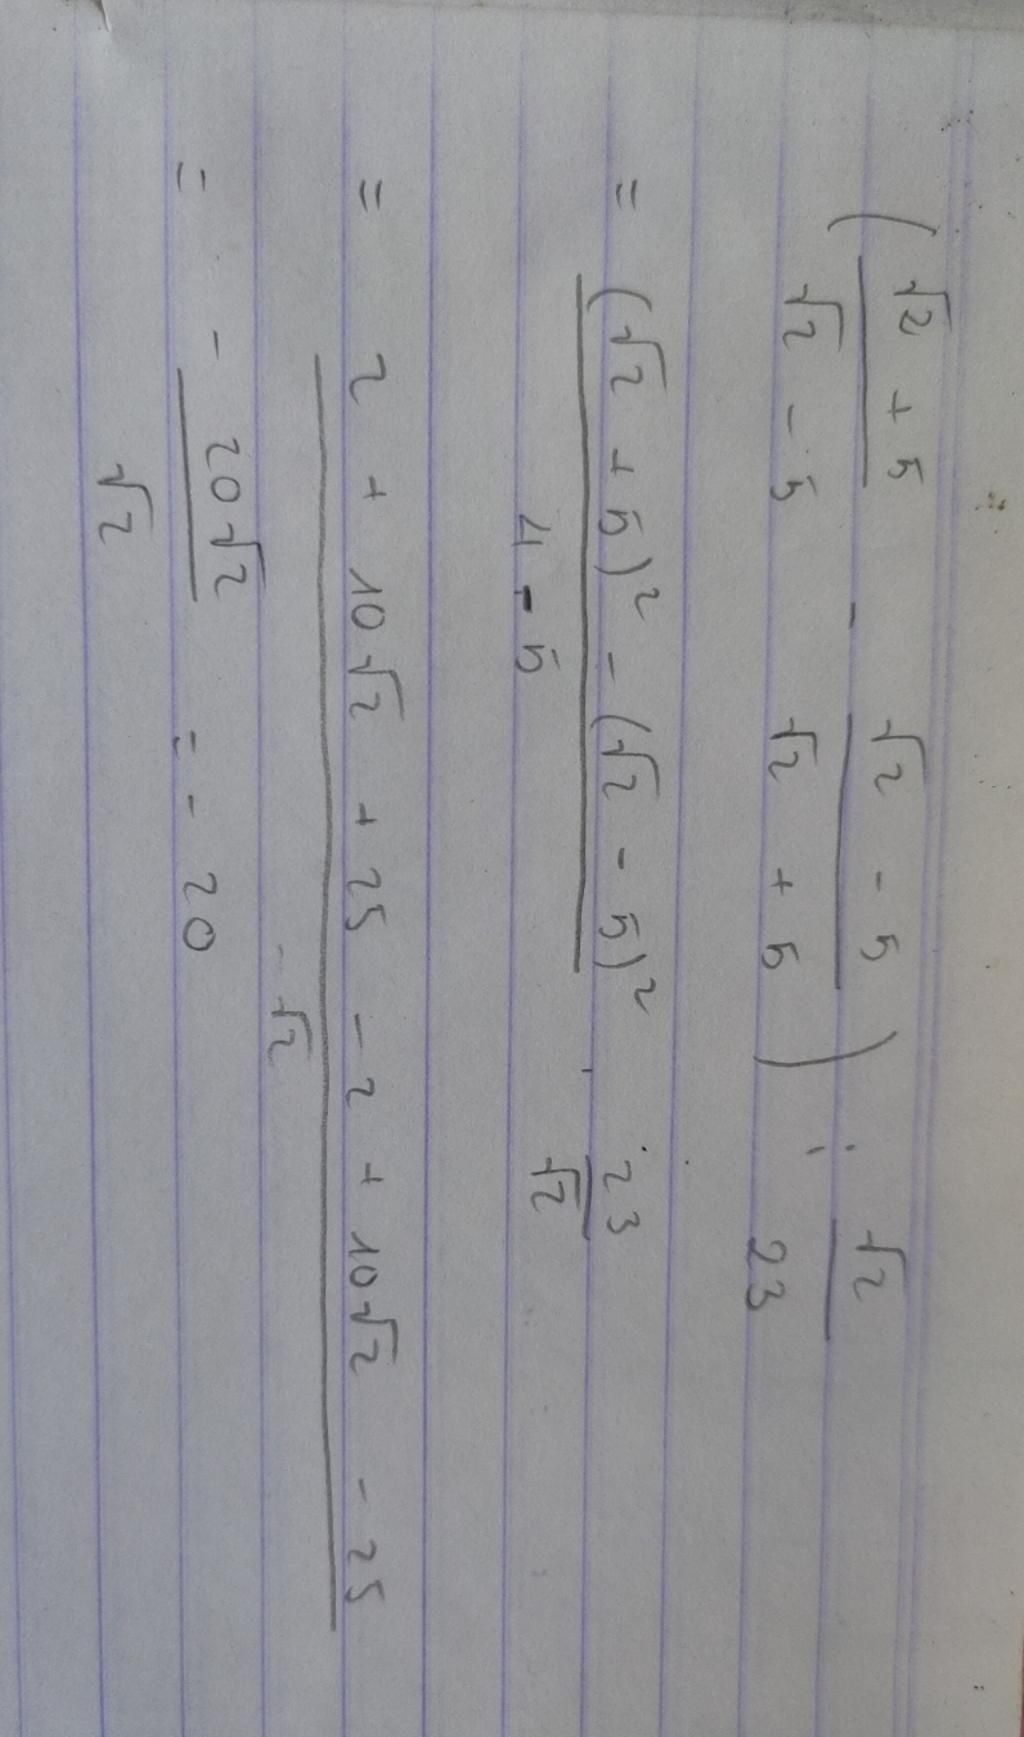 ( (√2 + 5)/(√2 - 5) - (√2 - 5)/(√2 + 5) ) : √2/23
= ((√2 + 5)² - (√2 - 5)²)/(4 - 5) · 23/√2
= (2 + 10√2 + 25 - 2 + 10√2 - 25)/(-√2)
= - 20√2/√2 = - 20